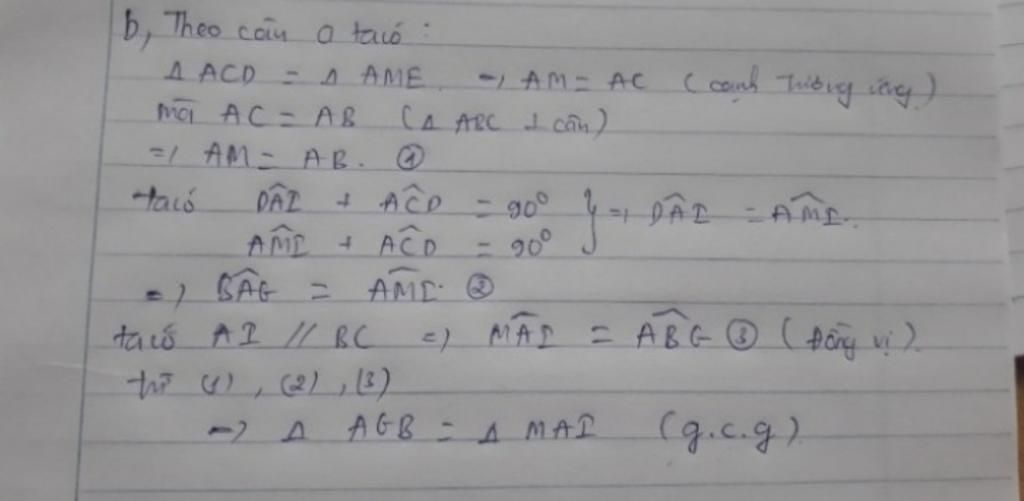 b, Theo câu a ta có :
Δ ACD = Δ AME. => AM = AC ( cạnh tương ứng )
mà AC = AB ( Δ ABC ⊥ cân )
=> AM = AB. ①
ta có DÂI + AĈD = 90⁰ } => DÂI = AM̂I.
AM̂I + AĈD = 90⁰
=> BÂG = AM̂I. ②
ta có AI // BC => MÂI = AB̂G ③ ( đồng vị ).
từ (1), (2), (3)
=> Δ AGB = Δ MAI ( g.c.g )